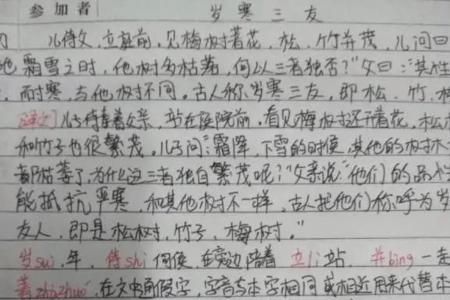 参加者 岁寒三友
儿侍父,立庭前,见梅树着花,松、竹并茂,儿问曰
霜雪之时,他树多枯落,何以三者独否?"父曰:"其性
而寒,与他树不同。古人称岁寒三友,即松、竹、梅
儿子侍奉着父亲,站在庭院前,看见梅树还开着花,松
和竹子也很繁茂。儿子问:霜降、下雪的时候,其他的树木
都枯萎了,为什么这三者独自繁茂呢?"父亲说:"他们的品性
能抵抗严寒,和其他树不一样,古人把他们称呼为岁
友人,即是松树,竹子,梅树."
岁suì.年, 侍shì伺候,在旁边陪着 立lì站, 并bìng一
着zhāozhuó.在文中通假字,字音与本字相同或相近用来代替本